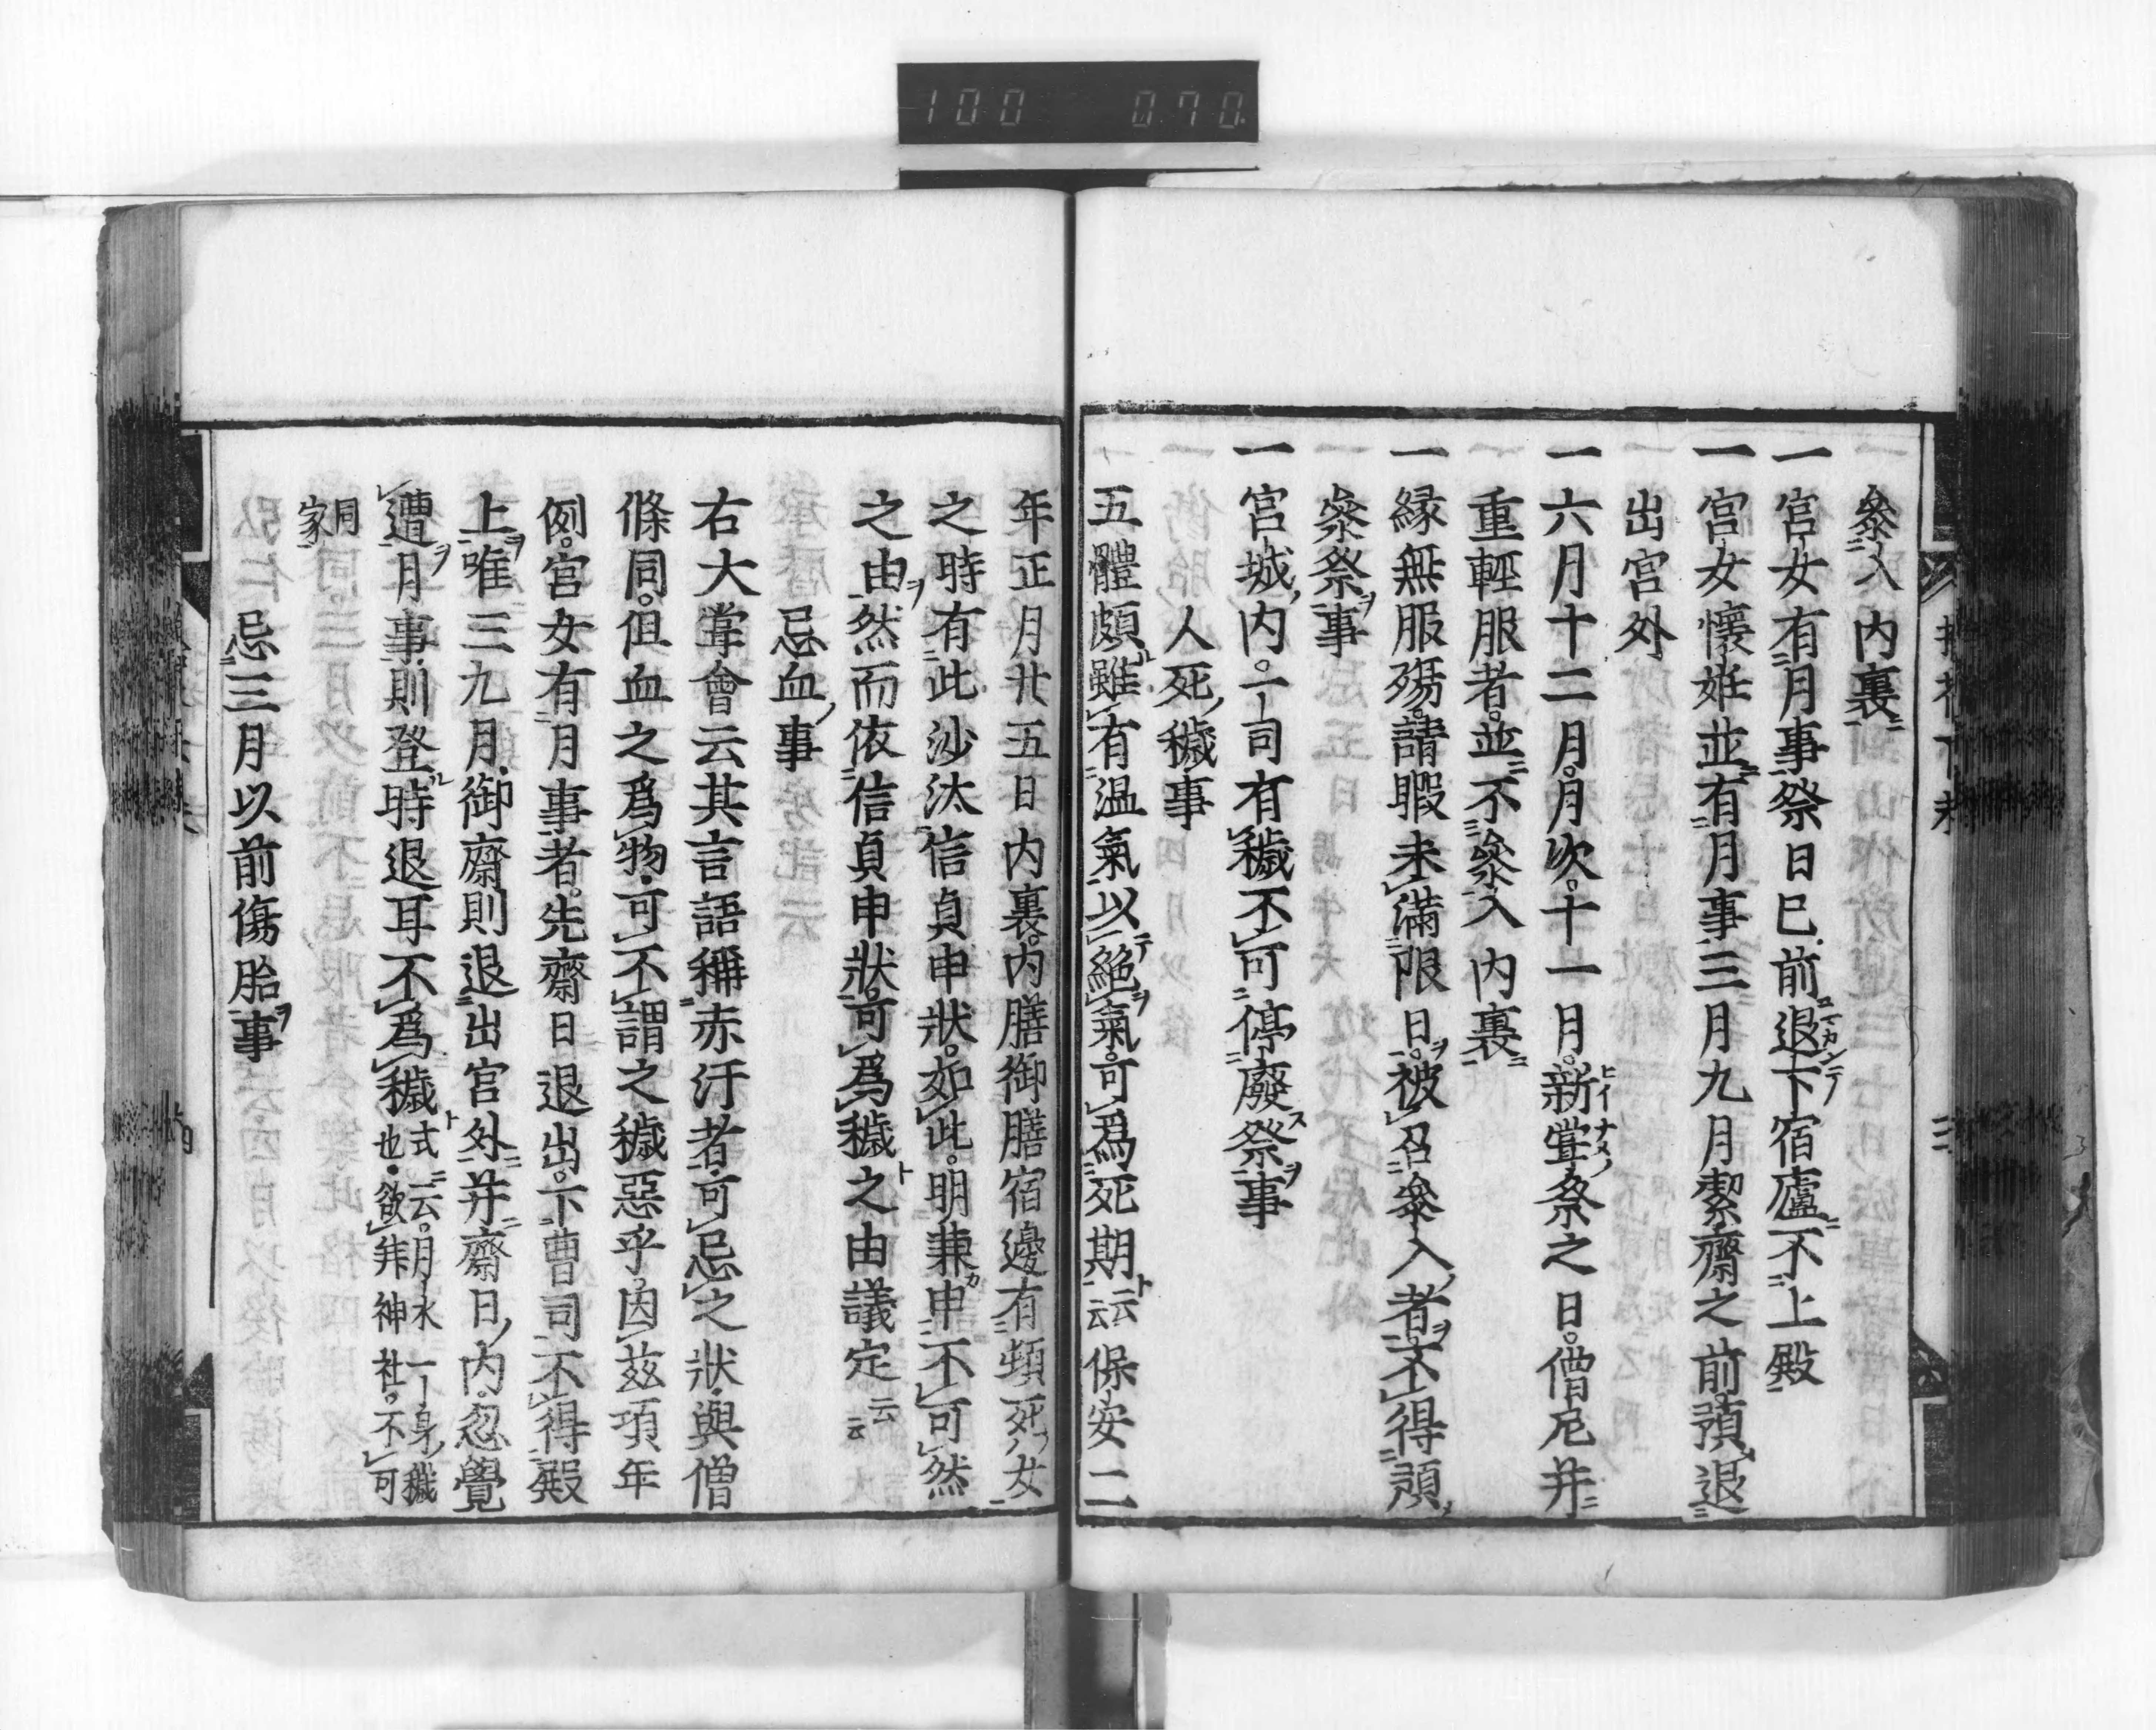 100 070
參入内裏
一宮女有月事祭日已前退下宿廬不上殿
一宮女懷姙並有月事三月九月潔齋之前預退
出宮外
一六月十二月。月次。十一月。新嘗祭之日。僧尼并
重輕服者。並不參入内裏
一縁無服殤。請暇未滿限日。被召參入者。不得預
參祭事
一宮城内。一司有穢不可停廢祭事
人死穢事
五體頗雖有温氣以絶氣。可爲死期云云保安二
年正月廿五日内裏。内膳御膳宿邊有頓死女
之時有此沙汰信貞申狀。如此。明兼申不可然
之由。然而依信貞申狀。可爲穢之由議定云云
忌血事
右大嘗會云其言語稱赤汗者。可忌之狀。與僧
條同。但血之爲物。可不謂之穢惡乎。因茲項年
例。宮女有月事者。先齋日退出。下曹司不得殿
上。唯三九月。御齋則退出宮外。并齋日内。忽覺
遭月事。則登時退耳不爲穢式云。月水一身穢
也。欲拜神社。不可
同家
忌三月以前傷胎事